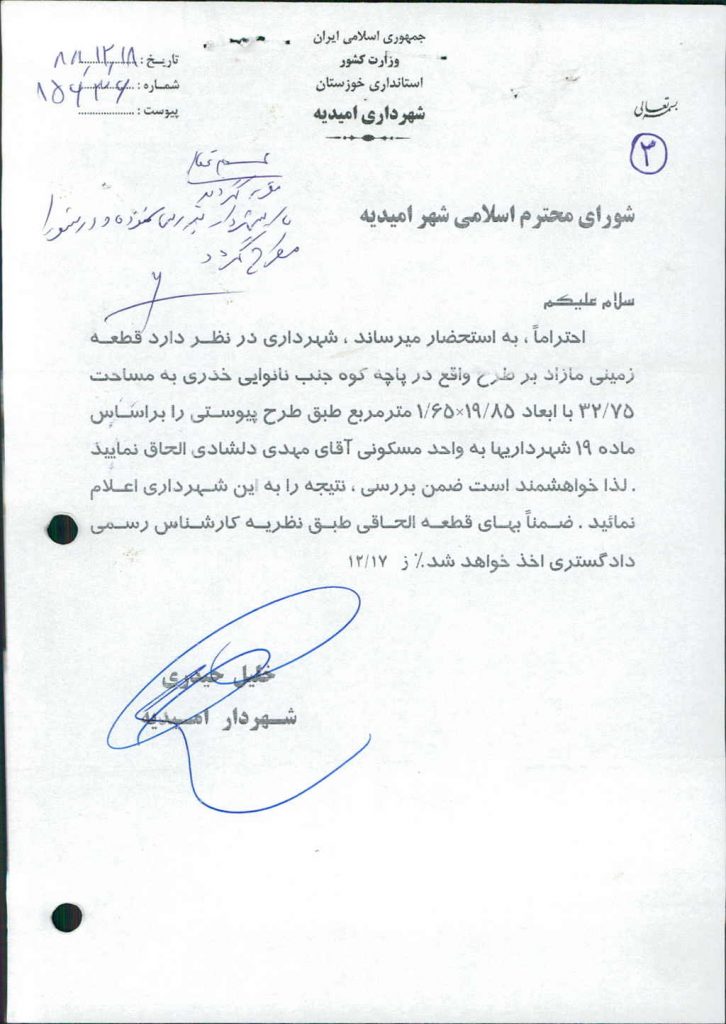 جمهوری اسلامی ایران
وزارت کشور
استانداری خوزستان
شهرداری امیدیه
بسمه تعالی
تاریخ : ۸۸,۱۲,۱۸
شماره :
پیوست :
۳
شورای محترم اسلامی شهر امیدیه
سلام علیکم
احتراماً ، به استحضار میرساند ، شهرداری در نظر دارد قطعه
زمینی مازاد بر طرح واقع در پاچه کوه جنب نانوایی خذری به مساحت
۳۲/۷۵ با ابعاد ۱۹/۸۵×۱/۶۵ مترمربع طبق طرح پیوستی را براساس
ماده ۱۹ شهرداریها به واحد مسکونی آقای مهدی دلشادی الحاق نمایید
. لذا خواهشمند است ضمن بررسی ، نتیجه را به این شهرداری اعلام
نمائید . ضمناً بهای قطعه الحاقی طبق نظریه کارشناس رسمی
دادگستری اخذ خواهد شد٪ ز ۱۲/۱۷
خلیل حیدری
شهردار امیدیه